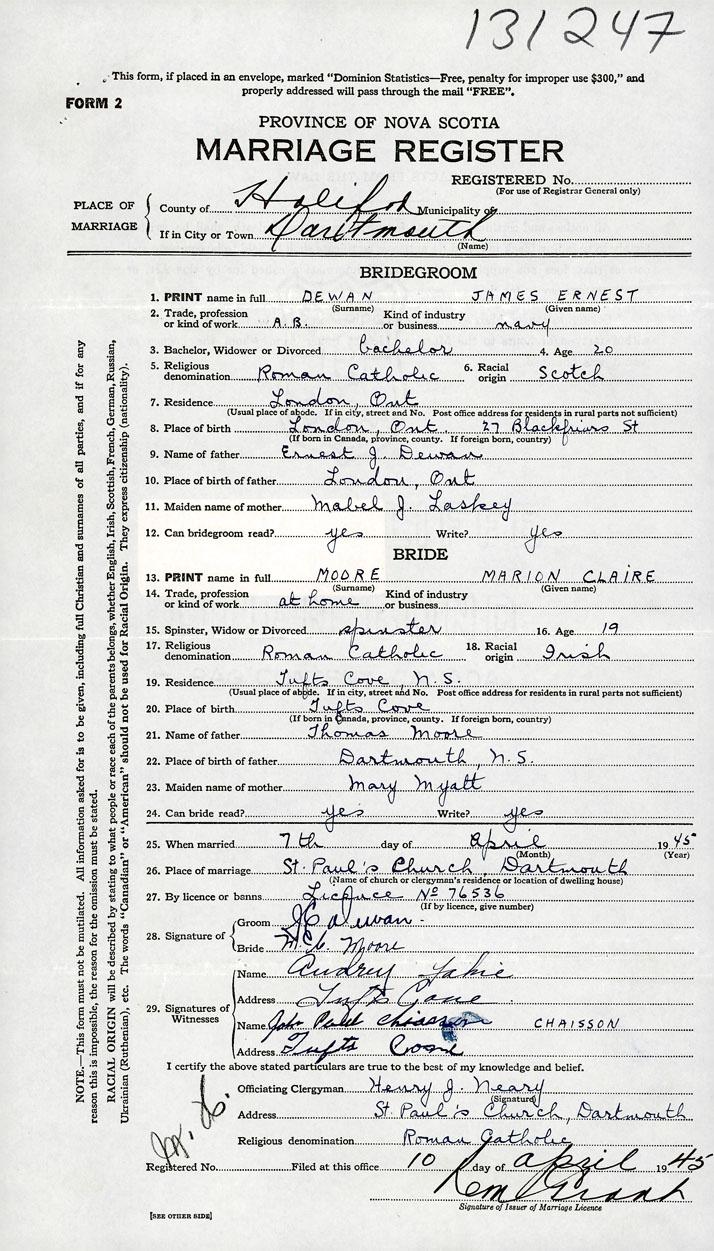 131247
This form, if placed in an envelope, marked "Dominion Statistics—Free, penalty for improper use $300," and
properly addressed will pass through the mail "FREE".
FORM 2
PROVINCE OF NOVA SCOTIA
MARRIAGE REGISTER
REGISTERED No.
(For use of Registrar General only)
PLACE OF MARRIAGE
County of Halifax Municipality of
If in City or Town Dartmouth
(Name)
BRIDEGROOM
1. PRINT name in full DEWAN JAMES ERNEST
(Surname) (Given name)
2. Trade, profession or kind of work A.B. Kind of industry or business navy
3. Bachelor, Widower or Divorced bachelor 4. Age 20
5. Religious denomination Roman Catholic 6. Racial origin Scotch
7. Residence London, Ont
(Usual place of abode. If in city, street and No. Post office address for residents in rural parts not sufficient)
8. Place of birth London, Ont. 27 Blackfriars St
(If born in Canada, province, county. If foreign born, country)
9. Name of father Ernest J. Dewan
10. Place of birth of father London, Ont
11. Maiden name of mother Mabel J. Laskey
12. Can bridegroom read? yes Write? yes
BRIDE
13. PRINT name in full MOORE MARION CLAIRE
(Surname) (Given name)
14. Trade, profession or kind of work at home Kind of industry or business
15. Spinster, Widow or Divorced spinster 16. Age 19
17. Religious denomination Roman Catholic 18. Racial origin Irish
19. Residence Tufts Cove, N.S.
(Usual place of abode. If in city, street and No. Post office address for residents in rural parts not sufficient)
20. Place of birth Tufts Cove
(If born in Canada, province, county. If foreign born, country)
21. Name of father Thomas Moore
22. Place of birth of father Dartmouth, N.S.
23. Maiden name of mother Mary Myatt
24. Can bride read? yes Write? yes
25. When married 7th day of April 1945
(Month) (Year)
26. Place of marriage St. Paul's Church, Dartmouth
(Name of church or clergyman's residence or location of dwelling house)
27. By licence or banns Licence No 76536
(If by licence, give number)
28. Signature of
Groom Dewan
Bride M.C. Moore
29. Signatures of Witnesses
Name Audrey
Address Tufts Cove
Name John Paul Chiasson CHAISSON
Address Tufts Cove
I certify the above stated particulars are true to the best of my knowledge and belief.
Officiating Clergyman Henry J. Neary
(Signature)
Address St. Paul's Church, Dartmouth
Religious denomination Roman Catholic
Registered No. Filed at this office 10 day of April 1945
Grant
Signature of Issuer of Marriage Licence
[SEE OTHER SIDE]
NOTE.—This form must not be mutilated. All information asked for is to be given, including full Christian and surnames of all parties, and if for any
reason this is impossible, the reason for the omission must be stated.
RACIAL ORIGIN will be described by stating to what people or race each of the parents belongs, whether English, Irish, Scottish, French, German, Russian,
Ukrainian (Ruthenian), etc. The words "Canadian" or "American" should not be used for Racial Origin. They express citizenship (nationality).